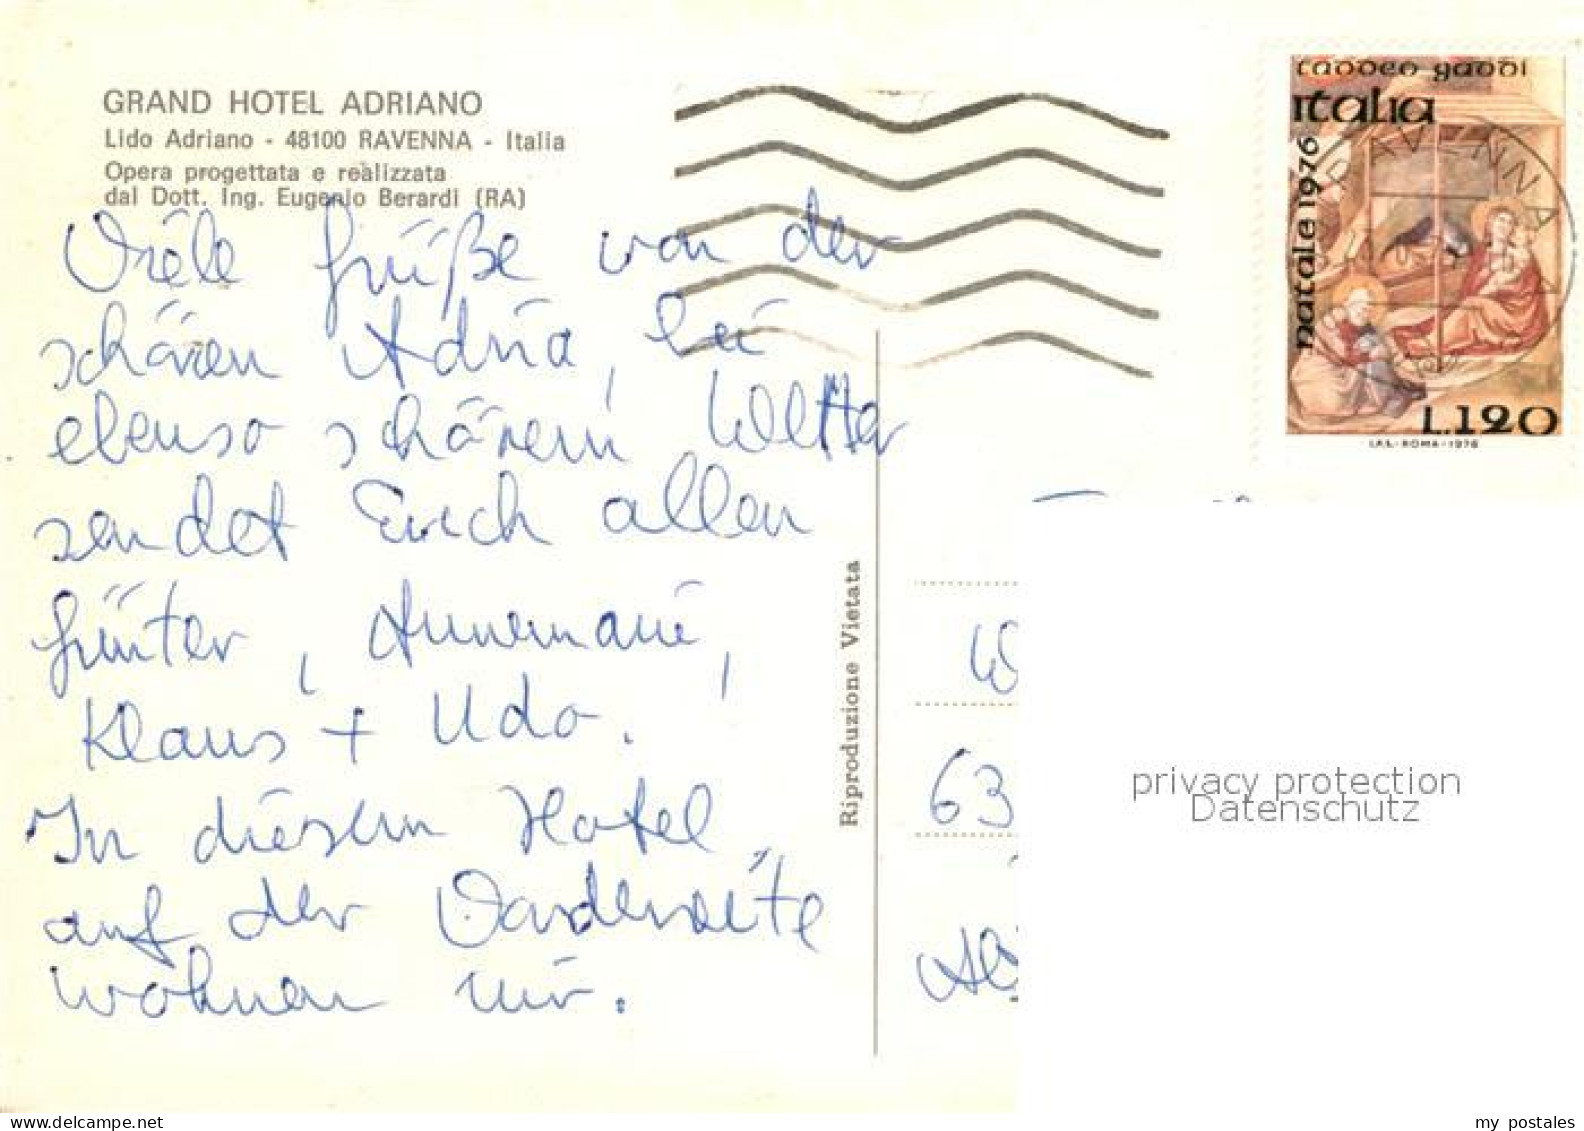 GRAND HOTEL ADRIANO
Lido Adriano - 48100 RAVENNA - Italia
Opera progettata e realizzata
dal Dott. Ing. Eugenio Berardi (RA)
Viele Grüße von der
schönen Adria, bei
ebenso schönem Wetter
sendet Euch allen
Günter, Annemarie,
Klaus + Udo.
In diesem Hotel
auf der Vorderseite
wohnen wir.
Riproduzione Vietata
taddeo gaddi
italia
natale 1976
L.120
I.P.S.-ROMA-1976
RAVENNA
W
63
privacy protection
Datenschutz
my postales